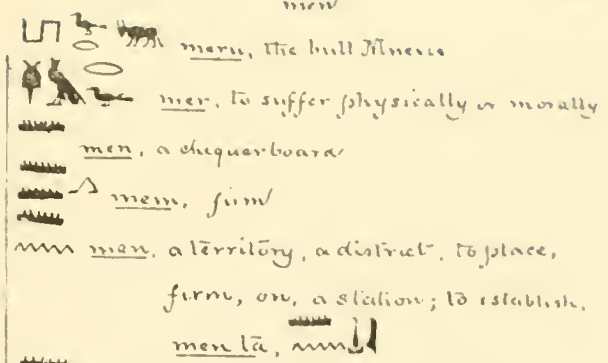 men
meru, the bull Mnevis
mer, to suffer physically or morally
men, a chequerboard
mem, firm
men, a territory, a district, to place,
firm, on, a station; to establish,
men ta,